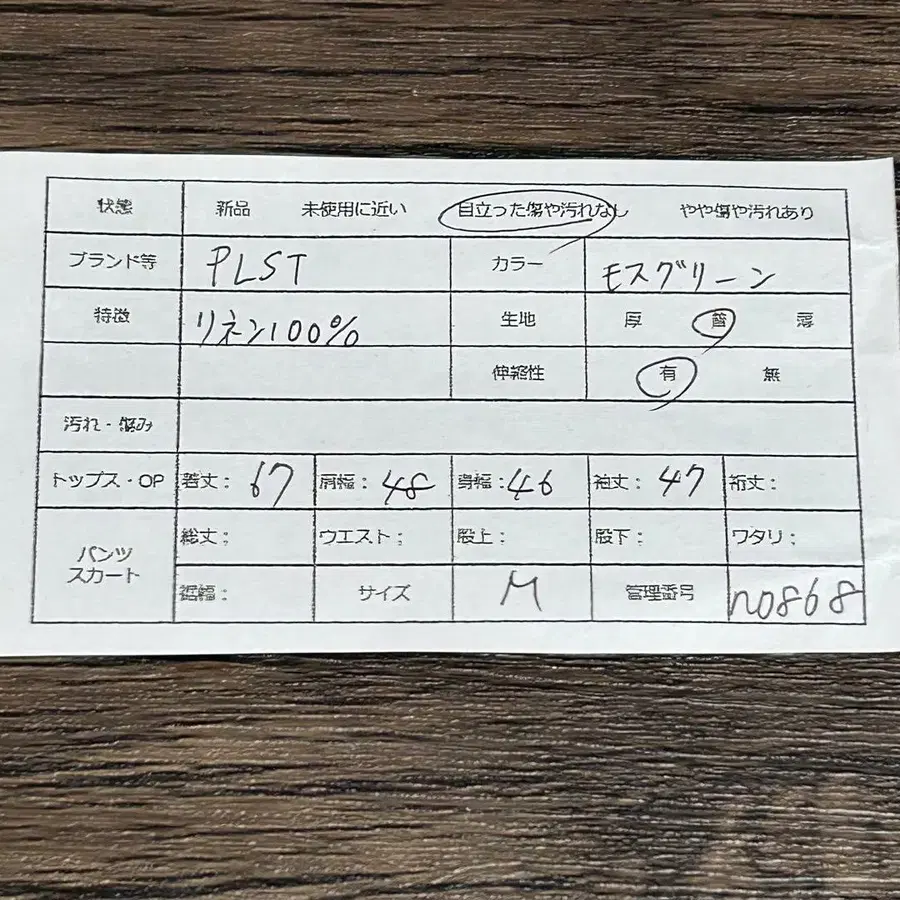 状態 新品 未使用に近い 目立った傷や汚れなし やや傷や汚れあり
ブランド等 PLST カラー モスグリーン
特徴 リネン100% 生地 厚 普 薄
伸縮性 有 無
汚れ・傷み
トップス・OP 着丈: 67 肩幅: 48 身幅: 46 袖丈: 47 裄丈:
パンツ スカート 総丈: ウエスト: 股上: 股下: ワタリ:
裾幅: サイズ M 管理番号 n0868